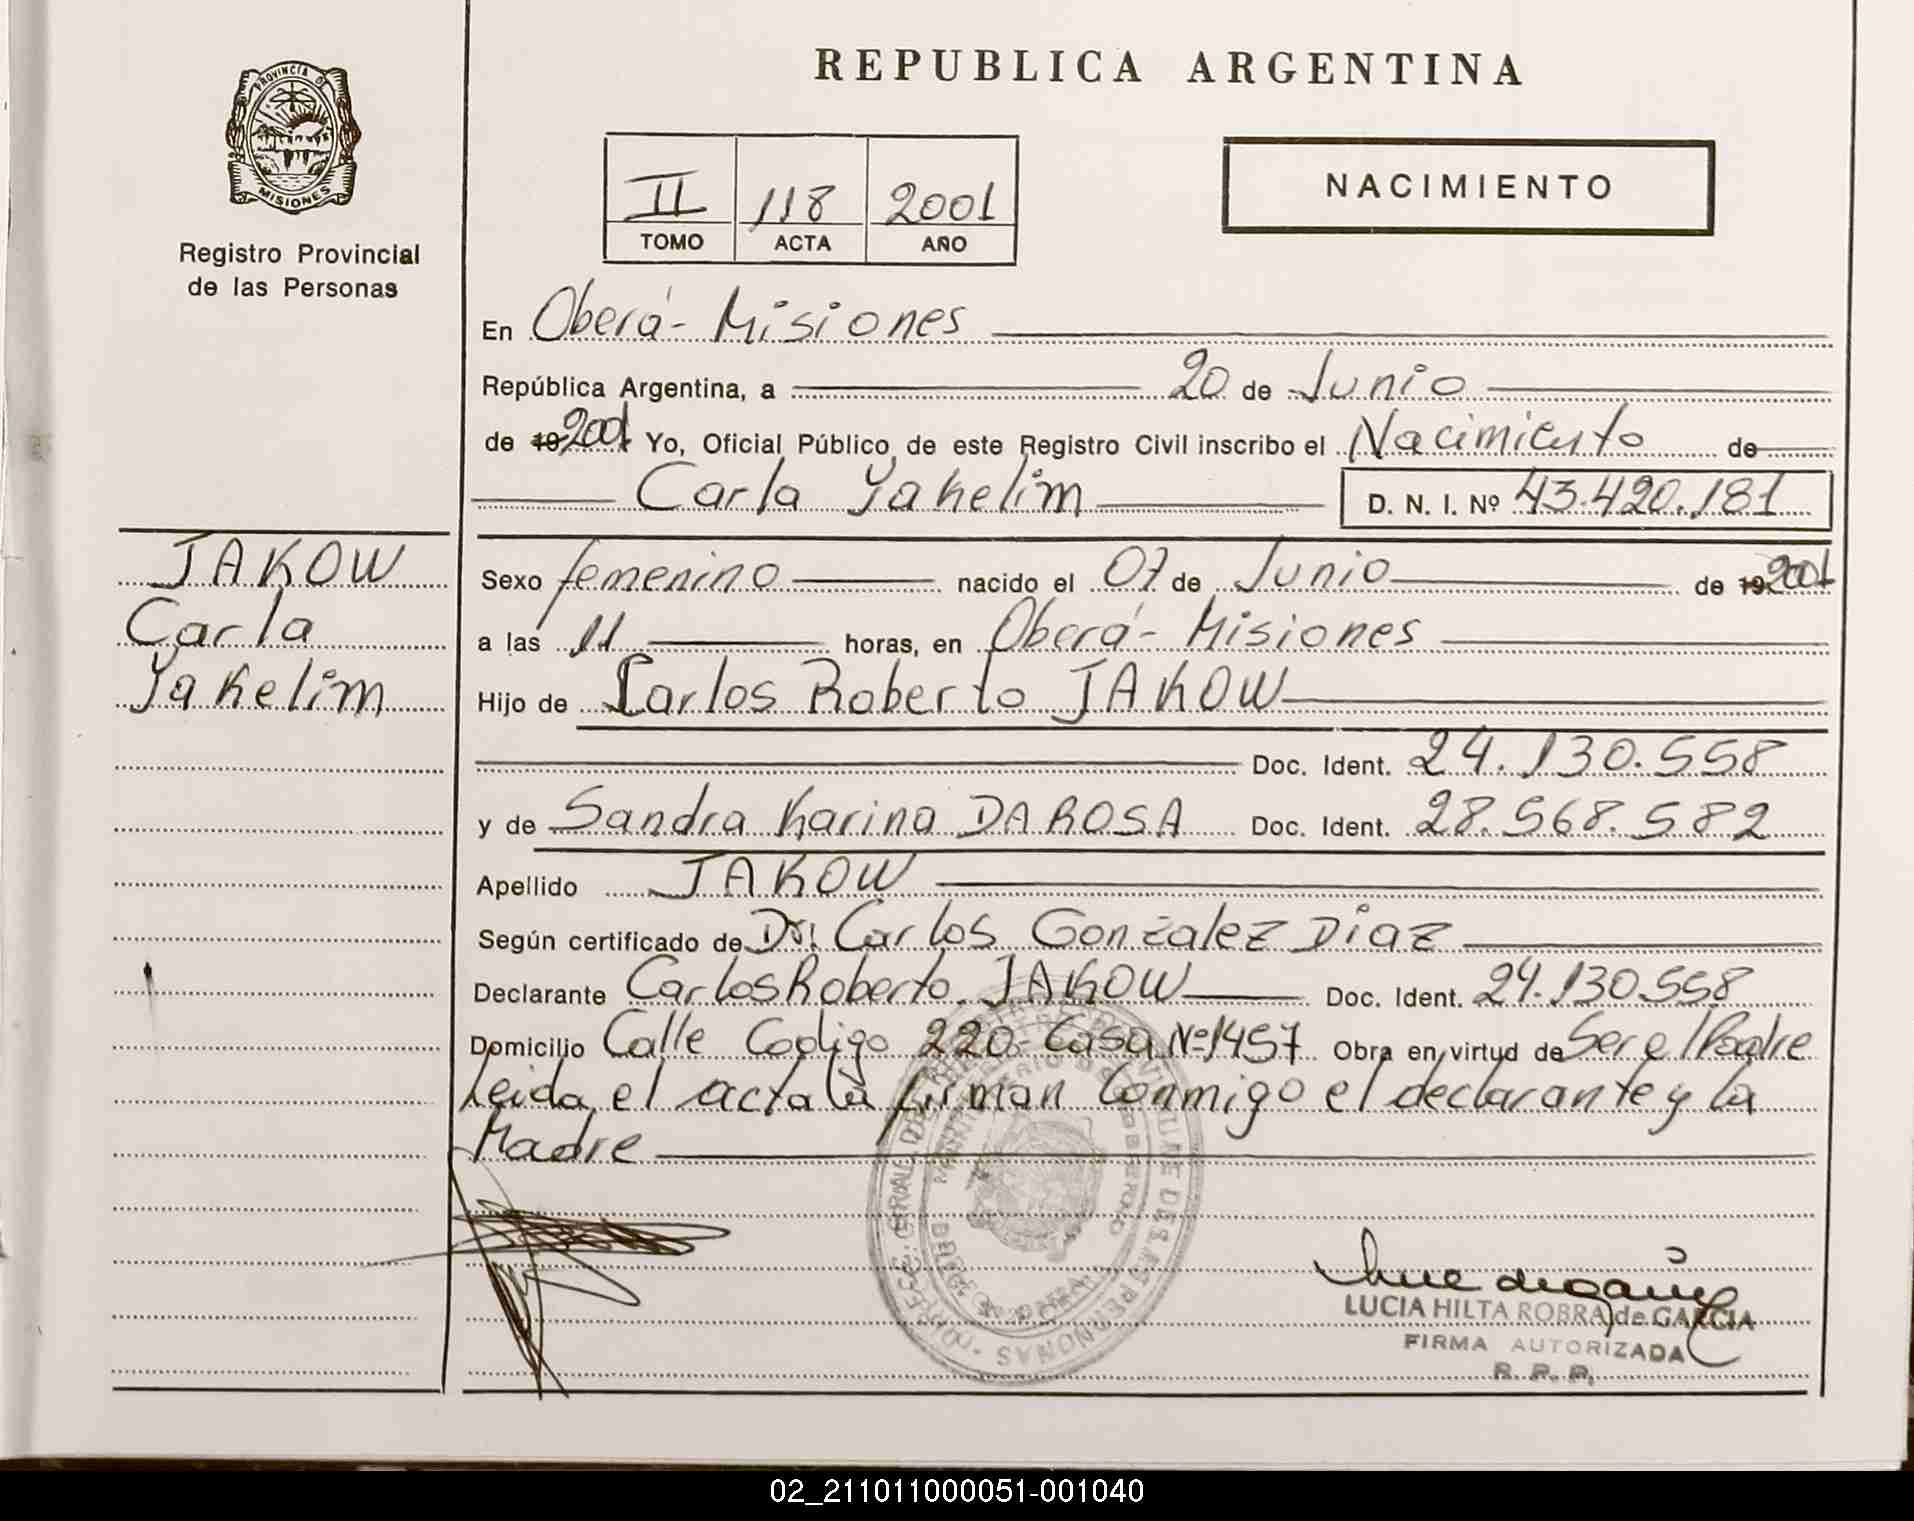 REPUBLICA ARGENTINA
PROVINCIA DE
MISIONES
Registro Provincial
de las Personas
II 118 2001
TOMO ACTA AÑO
NACIMIENTO
En Oberá - Misiones
República Argentina, a 20 de Junio
de 19 2001 Yo, Oficial Público de este Registro Civil inscribo el Nacimiento de
Carla Yakelim D. N. I. Nº 43.420.181
JAKOW
Carla
Yakelim
Sexo femenino nacido el 07 de Junio de 19 2001
a las 11 horas, en Oberá - Misiones
Hijo de Carlos Roberto JAKOW
Doc. Ident. 24.130.558
y de Sandra Karina DA ROSA Doc. Ident. 28.568.582
Apellido JAKOW
Según certificado de Dr. Carlos Gonzalez Diaz
Declarante Carlos Roberto JAKOW Doc. Ident. 24.130.558
Domicilio Calle Codigo 220 - Casa Nº 1457 Obra en virtud de Ser el Padre
Leida el acta la firman conmigo el declarante y la
Madre
LUCIA HILTA ROBRA de GARCIA
FIRMA AUTORIZADA
R. P. P.
02_211011000051-001040